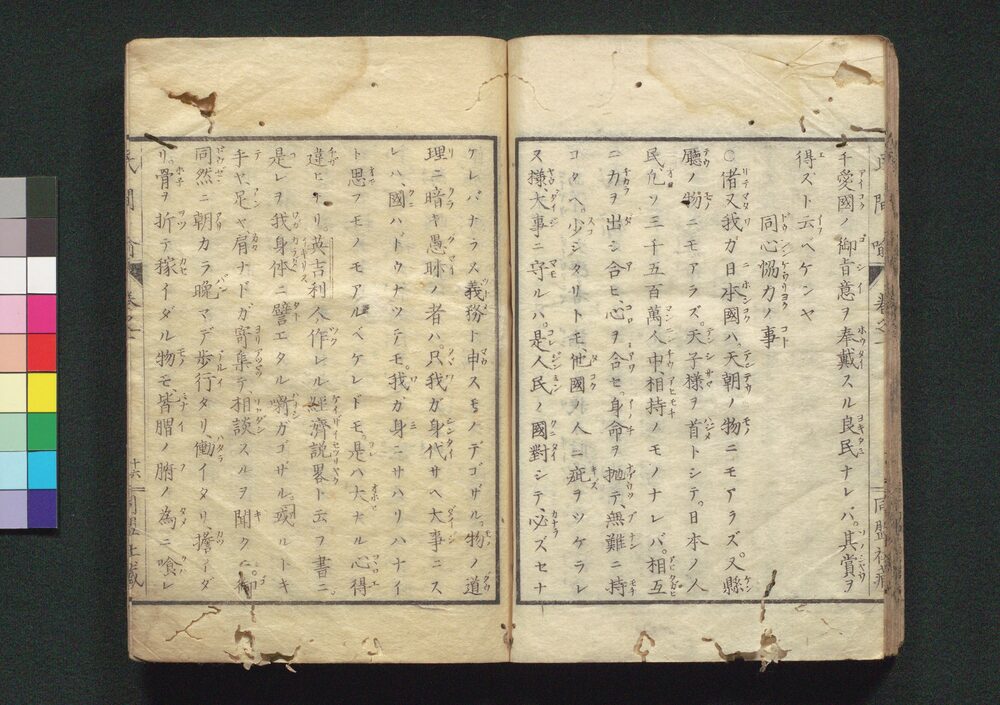 千愛國ノ御旨意ヲ奉戴スル良民ナレバ。其賞ヲ
得ズト云ヘケンヤ
同心恊力ノ事
○偖又我ガ日本國ハ、天朝ノ物ニモアラズ。又縣
廳ノ物ニモアラズ。天子様ヲ首トシテ。日本ノ人
民。凡ソ三千五百萬人中、相持ノモノナレバ。相互
ニカヲ出シ合ヒ、心ヲ合セ。身命ヲ抛テ、無難ニ持
コタヘ。少シタリトモ他國ノ人ニ疵ヲツケラレ
ス様、大事ニ守ルハ。是人民ノ國對シテ、必ズセナ
ケレバナラス義務ト申スモノデゴザル。物ノ道
理ニ暗キ愚昧ノ者ハ。只我ガ身代サヘ大事ニス
レハ、國ハトウナツテモ。我ガ身ニサハリハナイ
ト思フモノモアルベケレドモ。是ハ大ナル心得
違ヒナリ。英吉利人作レル經濟説畧ト云フ書ニ。
是レヲ我身体ニ譬エタル
手ヤ、足ヤ肩ナドガ寄集テ相談スルヲ聞クニ。御
同然ニ朝カラ晩マデ歩行タリ、働イタリ、擔イダ
リ。骨ヲ折テ稼イダル物モ。皆胃ノ腑ノ為ニ喰レ
民間 喩
卷之一
十六
同盟社藏